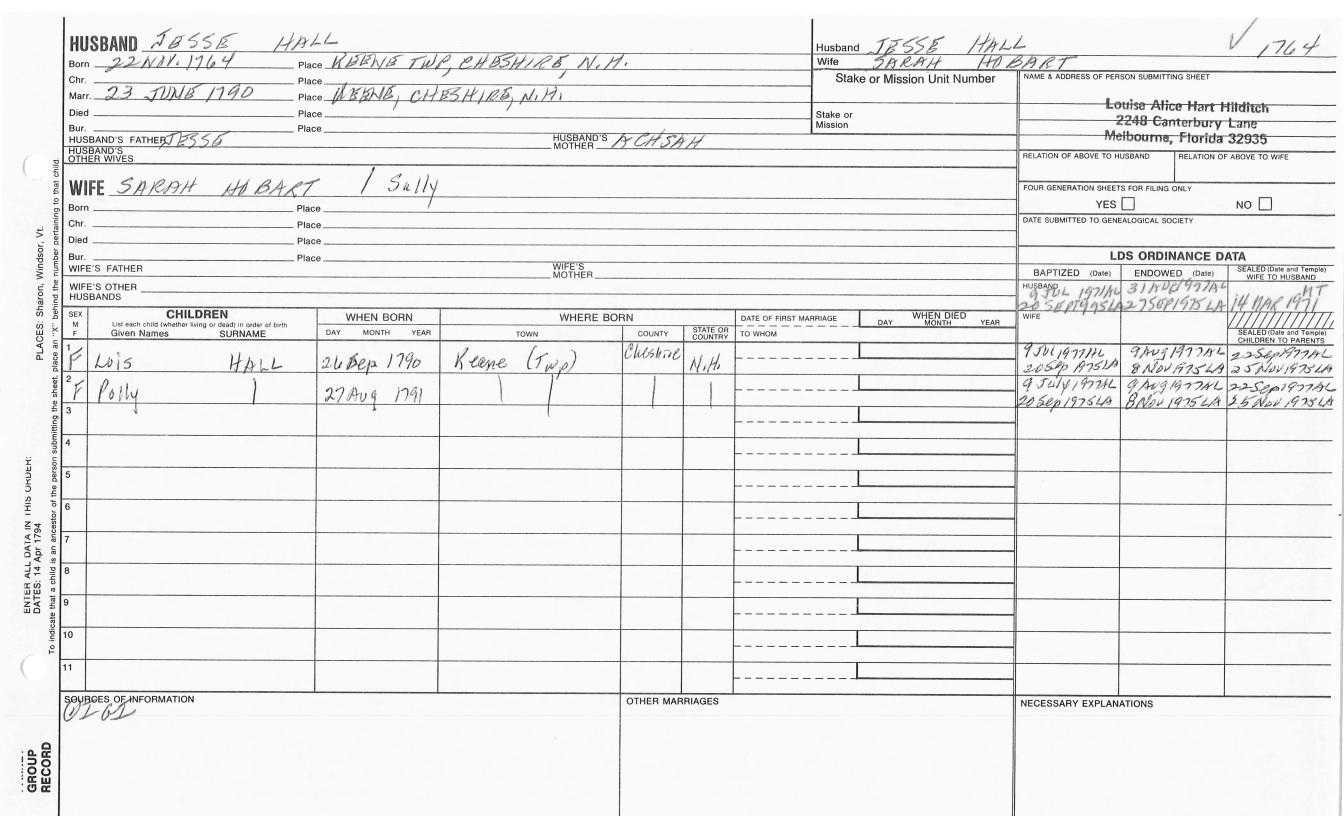 HUSBAND JESSE HALL
Born 22 NOV. 1764 Place KEENE TWP, CHESHIRE, N.H.
Chr. Place
Marr. 23 JUNE 1790 Place KEENE, CHESHIRE, N.H.
Died Place
Bur. Place
HUSBAND'S FATHER JESSE HUSBAND'S MOTHER ACHSAH
HUSBAND'S OTHER WIVES
WIFE SARAH HOBART / Sally
Born Place
Chr. Place
Died Place
Bur. Place
WIFE'S FATHER WIFE'S MOTHER
WIFE'S OTHER HUSBANDS
Husband JESSE HALL √ 1764
Wife SARAH HOBART
Stake or Mission Unit Number
Stake or Mission
NAME & ADDRESS OF PERSON SUBMITTING SHEET
Louise Alice Hart Hilditch
2248 Canterbury Lane
Melbourne, Florida 32935
RELATION OF ABOVE TO HUSBAND RELATION OF ABOVE TO WIFE
FOUR GENERATION SHEETS FOR FILING ONLY
YES NO
DATE SUBMITTED TO GENEALOGICAL SOCIETY
LDS ORDINANCE DATA
BAPTIZED (Date) ENDOWED (Date) SEALED (Date and Temple) WIFE TO HUSBAND
HUSBAND 9 JUL 1971AL 31 AUG 1977AL MT
20 SEPT 1975LA 27 SEP 1975 LA 14 MAR 1971
WIFE
SEALED (Date and Temple) CHILDREN TO PARENTS
SEX M F
CHILDREN
List each child (whether living or dead) in order of birth
Given Names SURNAME
WHEN BORN
DAY MONTH YEAR
WHERE BORN
TOWN COUNTY STATE OR COUNTRY
DATE OF FIRST MARRIAGE
TO WHOM
WHEN DIED
DAY MONTH YEAR
1 F Lois HALL 26 Sep 1790 Keene (Twp) Cheshire N.H.
9 Jul 1977AL 9 Aug 1977AL 22 Sep 1977AL
20 Sep 1975LA 8 Nov 1975LA 25 Nov 1975LA
2 F Polly 27 Aug 1791
9 July 1977AL 9 Aug 1977AL 22 Sep 1977AL
20 Sep 1975LA 8 Nov 1975LA 25 Nov 1975LA
3
4
5
6
7
8
9
10
11
SOURCES OF INFORMATION
OTHER MARRIAGES
NECESSARY EXPLANATIONS
PLACES: Sharon, Windsor, Vt.
ENTER ALL DATA IN THIS ORDER:
DATES: 14 Apr 1794
To indicate that a child is an ancestor of the person submitting the sheet, place an "X" behind the number pertaining to that child
GROUP
RECORD